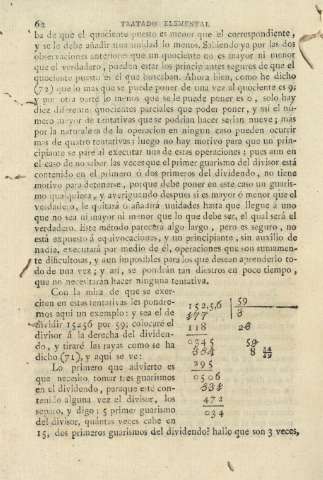 62 TRATADO ELEMENTAL
ba de que el quociente puesto es menor que el correspondiente,
y se le debe añadir una unidad lo menos. Sabiendo ya por las dos
observaciones anteriores que un quociente no es mayor ni menor
que el verdadero, pueden estar los principiantes seguros de que el
quociente puesto es el que buscaban. Ahora bien, como he dicho
(72) que lo mas que se puede poner de una vez al quociente es 9;
y por otra parte lo menos que se le puede poner es 0, solo hay
diez diferentes quocientes parciales que poder poner, y así el nú-
mero mayor de tentativas que se podrian hacer serian nueve; mas
por la naturaleza de la operacion en ningun caso pueden ocurrir
mas de quatro tentativas; luego no hay motivo para que un prin-
cipiante se pare al executar una de estas operaciones; pues aun en
el caso de no saber las veces que el primer guarismo del divisor está
contenido en el primero ó dos primeros del dividendo, no tiene
motivo para detenerse, porque debe poner en este caso un guaris-
mo qualquiera, y averiguando despues si es mayor ó menor que el
verdadero, le quitará ó añadirá unidades hasta que llegue á uno
que no sea ni mayor ni menor que lo que debe ser, el qual será el
verdadero. Este método parecerá algo largo, pero es seguro, no
está expuesto á equivocaciones, y un principiante, sin auxîlio de
nadie, executará por medio de él, operaciones que son sumamen-
te dificultosas, y aun imposibles para los que desean aprenderlo to-
do de una vez; y así, se pondrán tan diestros en poco tiempo,
que no necesitarán hacer ninguna tentativa.
Con la mira de que se exer-
citen en estas tentativas les pondre-
mos aquí un exemplo: y sea el de
dividir 15256 por 59; colocaré el
divisor á la derecha del dividen-
do, y tiraré las rayas como se ha
dicho (71), y aquí se ve:
Lo primero que advierto es
que necesito tomar tres guarismos
en el dividendo, para que esté con-
tenido alguna vez el divisor, los
separo, y digo; 5 primer guarismo
del divisor, quántas veces cabe en
152,5,6 59
177 3
118 28
0345 59
354 8
295
0506
531
472
034
15, dos primeros guarismos del dividendo? hallo que son 3 veces,